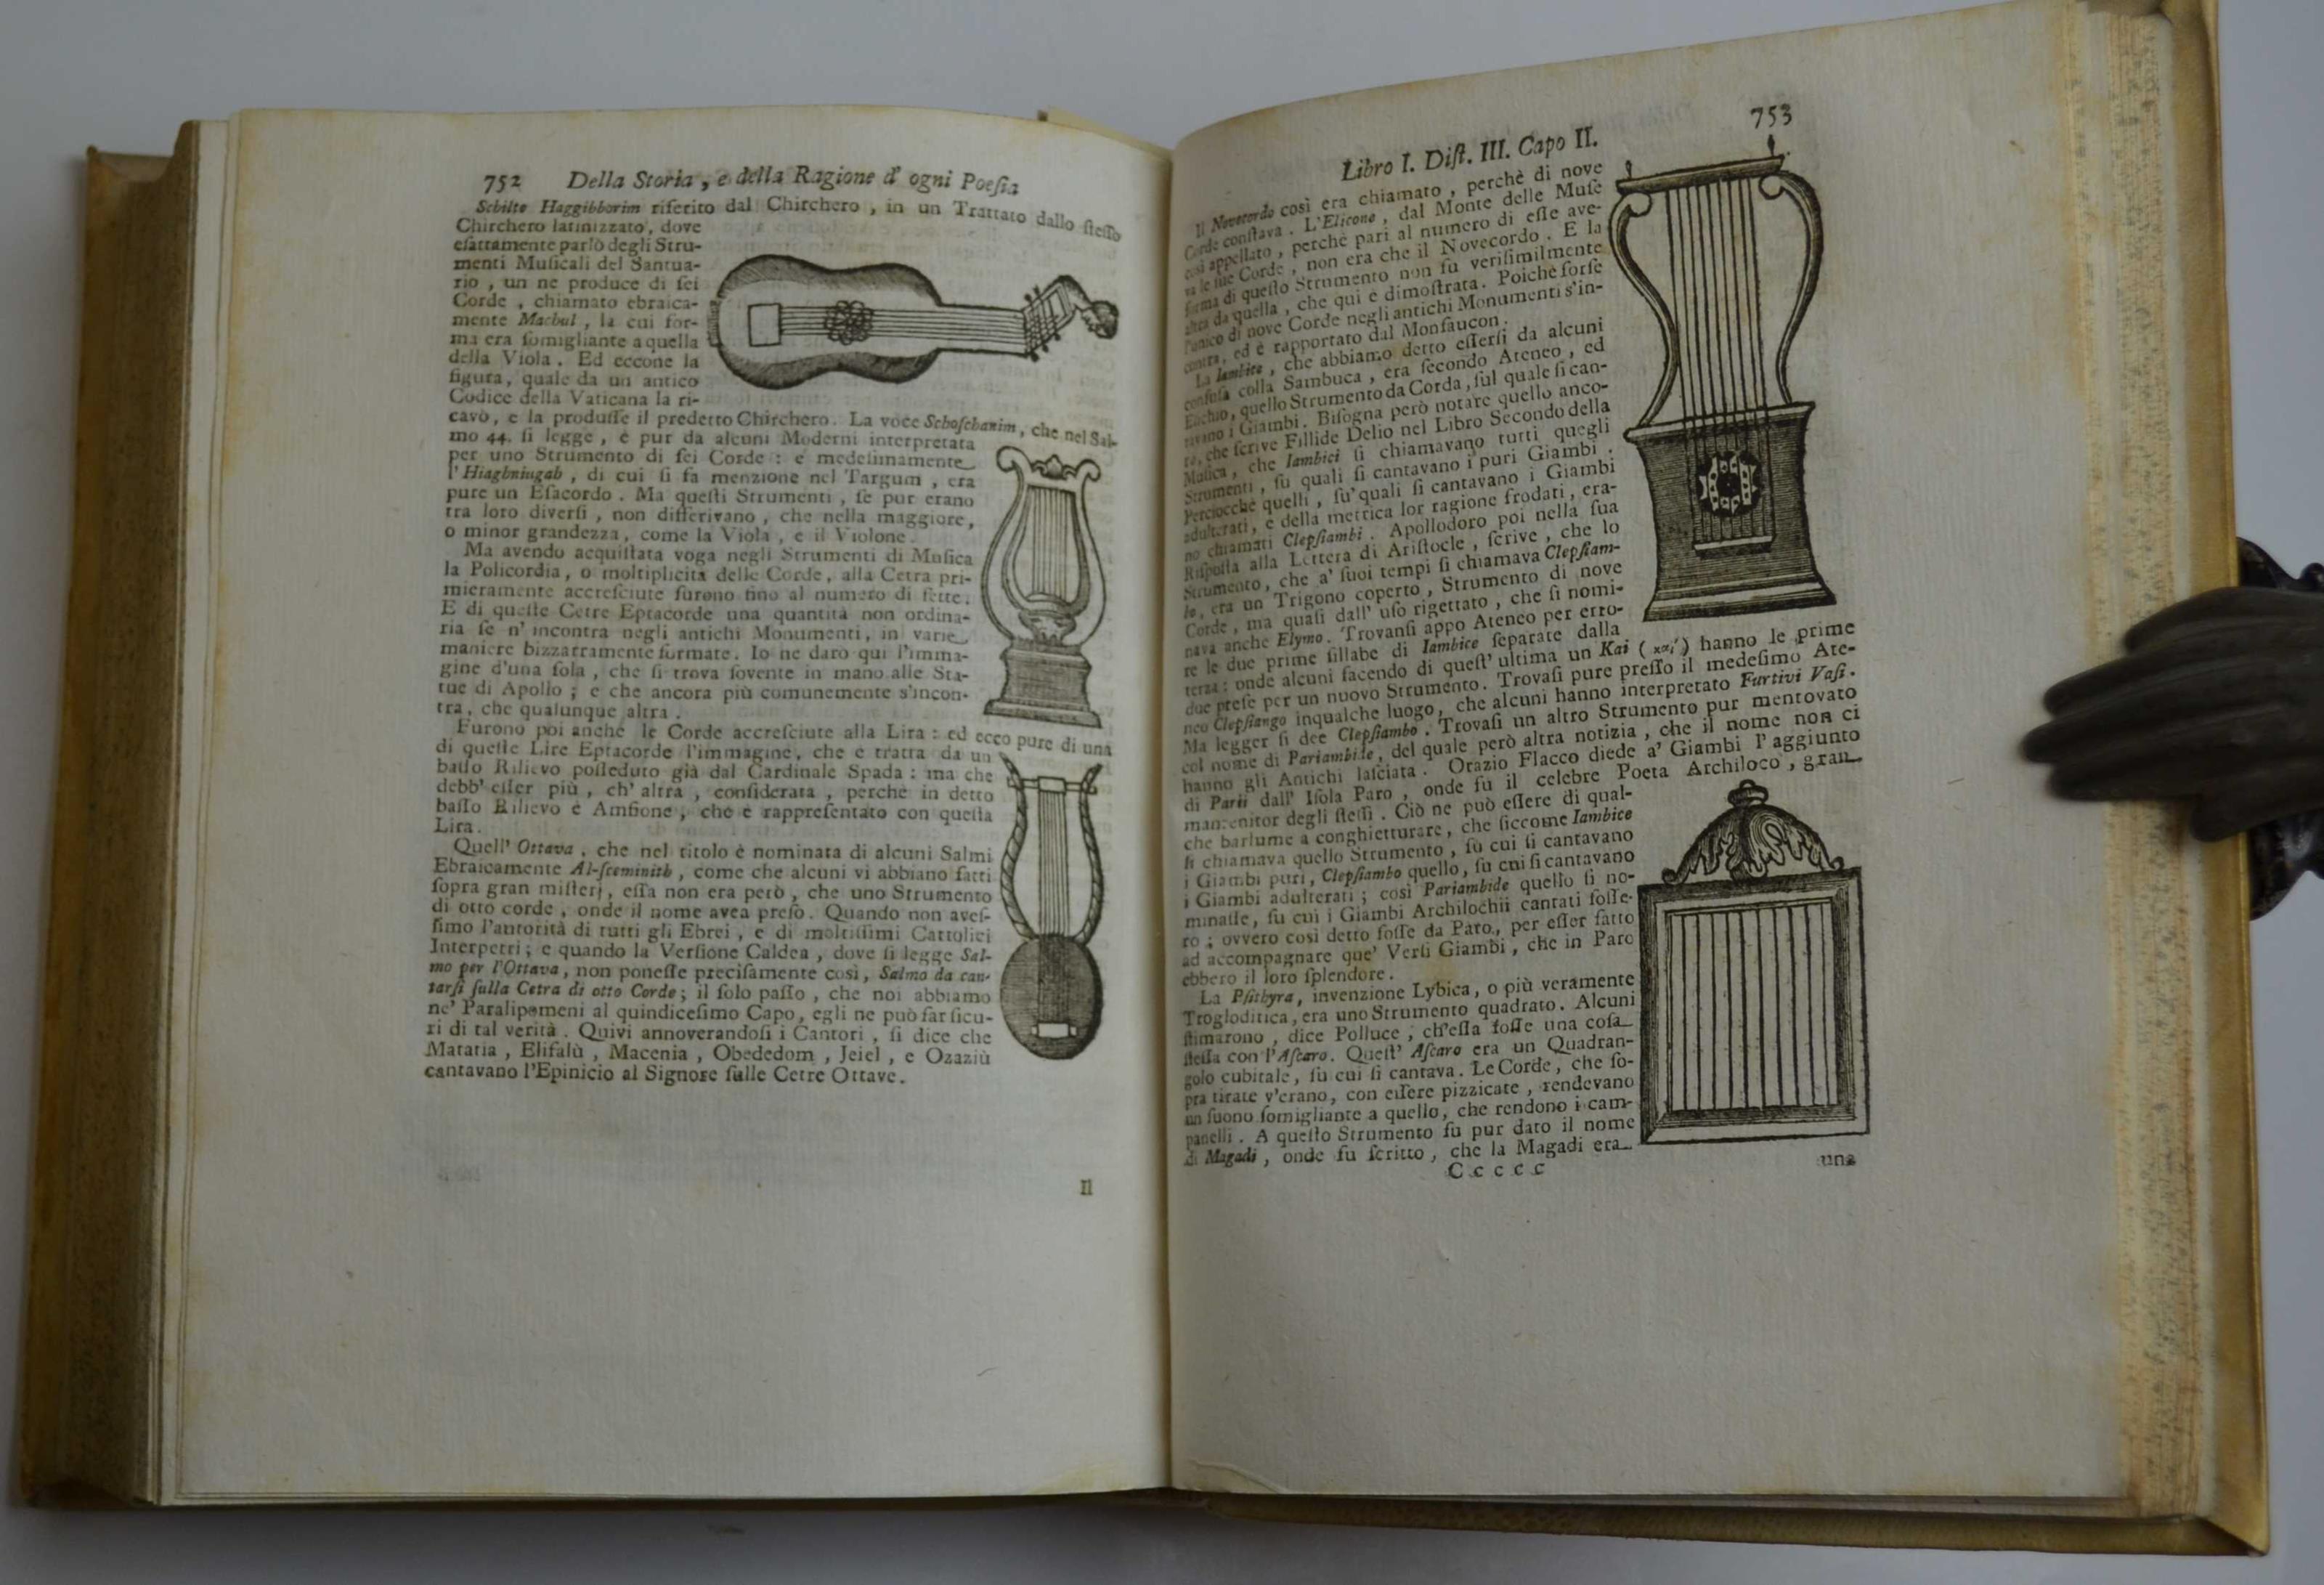 752 Della Storia, e della Ragione d' ogni Poeſia
Schilte Haggibborim riferito dal Chirchero, in un Trattato dallo ſteſſo
Chirchero latinizzato, dove
eſattamente parlò degli Stru-
menti Muſicali del Santua-
rio, un ne produce di ſei
Corde, chiamato ebraica-
mente Machul, la cui for-
ma era ſomigliante a quella
della Viola. Ed eccone la
figura, quale da un antico
Codice della Vaticana la ri-
cavò, e la produſſe il predetto Chirchero. La voce Schoſchanim, che nel Sal-
mo 44. ſi legge, è pur da alcuni Moderni interpretata
per uno Strumento di ſei Corde: e medeſimamente
l'Hiaghniugab, di cui ſi fa menzione nel Targum, era
pure un Eſacordo. Ma queſti Strumenti, ſe pur erano
tra loro diverſi, non differivano, che nella maggiore,
o minor grandezza, come la Viola, e il Violone.
Ma avendo acquiſtata voga negli Strumenti di Muſica
la Policordia, o moltiplicità delle Corde, alla Cetra pri-
mieramente accreſciute furono fino al numero di ſette.
E di queſte Cetre Eptacorde una quantità non ordina-
ria ſe n' incontra negli antichi Monumenti, in varie
maniere bizzarramente formate. Io ne darò qui l'imma-
gine d'una ſola, che ſi trova ſovente in mano alle Sta-
tue di Apollo; e che ancora più comunemente s'incon-
tra, che qualunque altra.
Furono poi anche le Corde accreſciute alla Lira: ed ecco pure di una
di queſte Lire Eptacorde l'immagine, che è tratta da un
baſſo Rilievo poſſeduto già dal Cardinale Spada: ma che
debb' eſſer più, ch' altra, conſiderata, perchè in detto
baſſo Rilievo è Amfione, che è rappreſentato con queſta
Lira.
Quell' Ottava, che nel titolo è nominata di alcuni Salmi
Ebraicamente Al-ſceminith, come che alcuni vi abbiano fatti
ſopra gran miſterj, eſſa non era però, che uno Strumento
di otto corde, onde il nome avea preſo. Quando non aveſ-
ſimo l'autorità di tutti gli Ebrei, e di moltiſſimi Cattolici
Interpetri; e quando la Verſione Caldea, dove ſi legge Sal-
mo per l'Ottava, non poneſſe preciſamente così, Salmo da can-
tarſi ſulla Cetra di otto Corde; il ſolo paſſo, che noi abbiamo
ne' Paralipomeni al quindiceſimo Capo, egli ne può far ſicu-
ri di tal verità. Quivi annoverandoſi i Cantori, ſi dice che
Matatia, Elifalù, Macenia, Obededom, Jeiel, e Ozaziù
cantavano l'Epinicio al Signore ſulle Cetre Ottave.
Il
Libro I. Diſt. III. Capo II. 753
Il Novecordo così era chiamato, perchè di nove
Corde conſtava. L'Elicone, dal Monte delle Muſe
così appellato, perchè pari al numero di eſſe ave-
va le ſue Corde, non era che il Novecordo. E la
forma di queſto Strumento non fu veriſimilmente
altra da quella, che qui è dimoſtrata. Poichè forſe
l'unico di nove Corde negli antichi Monumenti s'in-
contra, ed è rapportato dal Monfaucon.
La Iambice, che abbiamo detto eſſerſi da alcuni
confuſa colla Sambuca, era ſecondo Ateneo, ed
Eſichio, quello Strumento da Corda, ſul quale ſi can-
tavano i Giambi. Biſogna però notare quello anco-
ra, che ſcrive Fillide Delio nel Libro Secondo della
Muſica, che Iambici ſi chiamavano tutti quegli
Strumenti, ſu quali ſi cantavano i puri Giambi.
Perciocchè quelli, ſu' quali ſi cantavano i Giambi
adulterati, e della metrica lor ragione frodati, era-
no chiamati Clepſiambi. Apollodoro poi nella ſua
Riſpoſta alla Lettera di Ariſtocle, ſcrive, che lo
Strumento, che a' ſuoi tempi ſi chiamava Clepſiam-
bo, era un Trigono coperto, Strumento di nove
Corde, ma quaſi dall' uſo rigettato, che ſi nomi-
nava anche Elymo. Trovanſi appo Ateneo per erro-
re le due prime ſillabe di Iambice ſeparate dalla
terza: onde alcuni facendo di queſt' ultima un Kai (καὶ) hanno le prime
due preſe per un nuovo Strumento. Trovaſi pure preſſo il medeſimo Ate-
neo Clepſiango in qualche luogo, che alcuni hanno interpretato Furtivi Vaſi.
Ma legger ſi dee Clepſiambo. Trovaſi un altro Strumento pur mentovato
col nome di Pariambide, del quale però altra notizia, che il nome non ci
hanno gli Antichi laſciata. Orazio Flacco diede a' Giambi l' aggiunto
di Parii dall' Iſola Paro, onde fu il celebre Poeta Archiloco, gran
mantenitor degli ſteſſi. Ciò ne può eſſere di qual-
che barlume a conghietturare, che ſiccome Iambice
ſi chiamava quello Strumento, ſu cui ſi cantavano
i Giambi puri, Clepſiambo quello, ſu cui ſi cantavano
i Giambi adulterati; così Pariambide quello ſi no-
minaſſe, ſu cui i Giambi Archilochii cantati foſſe-
ro; ovvero così detto foſſe da Paro, per eſſer fatto
ad accompagnare que' Verſi Giambi, che in Paro
ebbero il loro ſplendore.
La Pſithyra, invenzione Lybica, o più veramente
Trogloditica, era uno Strumento quadrato. Alcuni
ſtimarono, dice Polluce, ch'eſſa foſſe una coſa
ſteſſa con l'Aſcaro. Queſt' Aſcaro era un Quadran-
golo cubitale, ſu cui ſi cantava. Le Corde, che ſo-
pra tirate v'erano, con eſſere pizzicate, rendevano
un ſuono ſomigliante a quello, che rendono i cam-
panelli. A queſto Strumento fu pur dato il nome
di Magadi, onde fu ſcritto, che la Magadi era
C c c c c
una